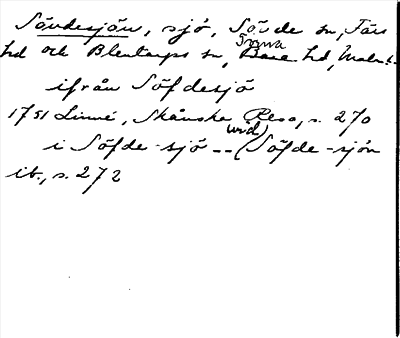 Sövdesjön, sjö, Sövde sn, Färs
hd och Blentarps sn, Torna hd, Malm. l.
ifrån Söfdesjö
1751 Linné, Skånska Resa, s. 270
i Söfde-sjö -- (wid) Söfde-sjön
ib., s. 272